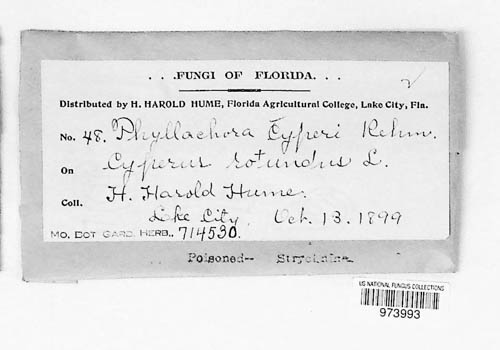 . . .FUNGI OF FLORIDA. . .
Distributed by H. HAROLD HUME, Florida Agricultural College, Lake City, Fla.
No. 48. Phyllachora Cyperi Rehm.
On Cyperus rotundus L.
Coll. H. Harold Hume.
Lake City, Oct. 13. 1899
MO. BOT GARD. HERB., 714530.
Poisoned-- Strychnine
US NATIONAL FUNGUS COLLECTIONS
973993